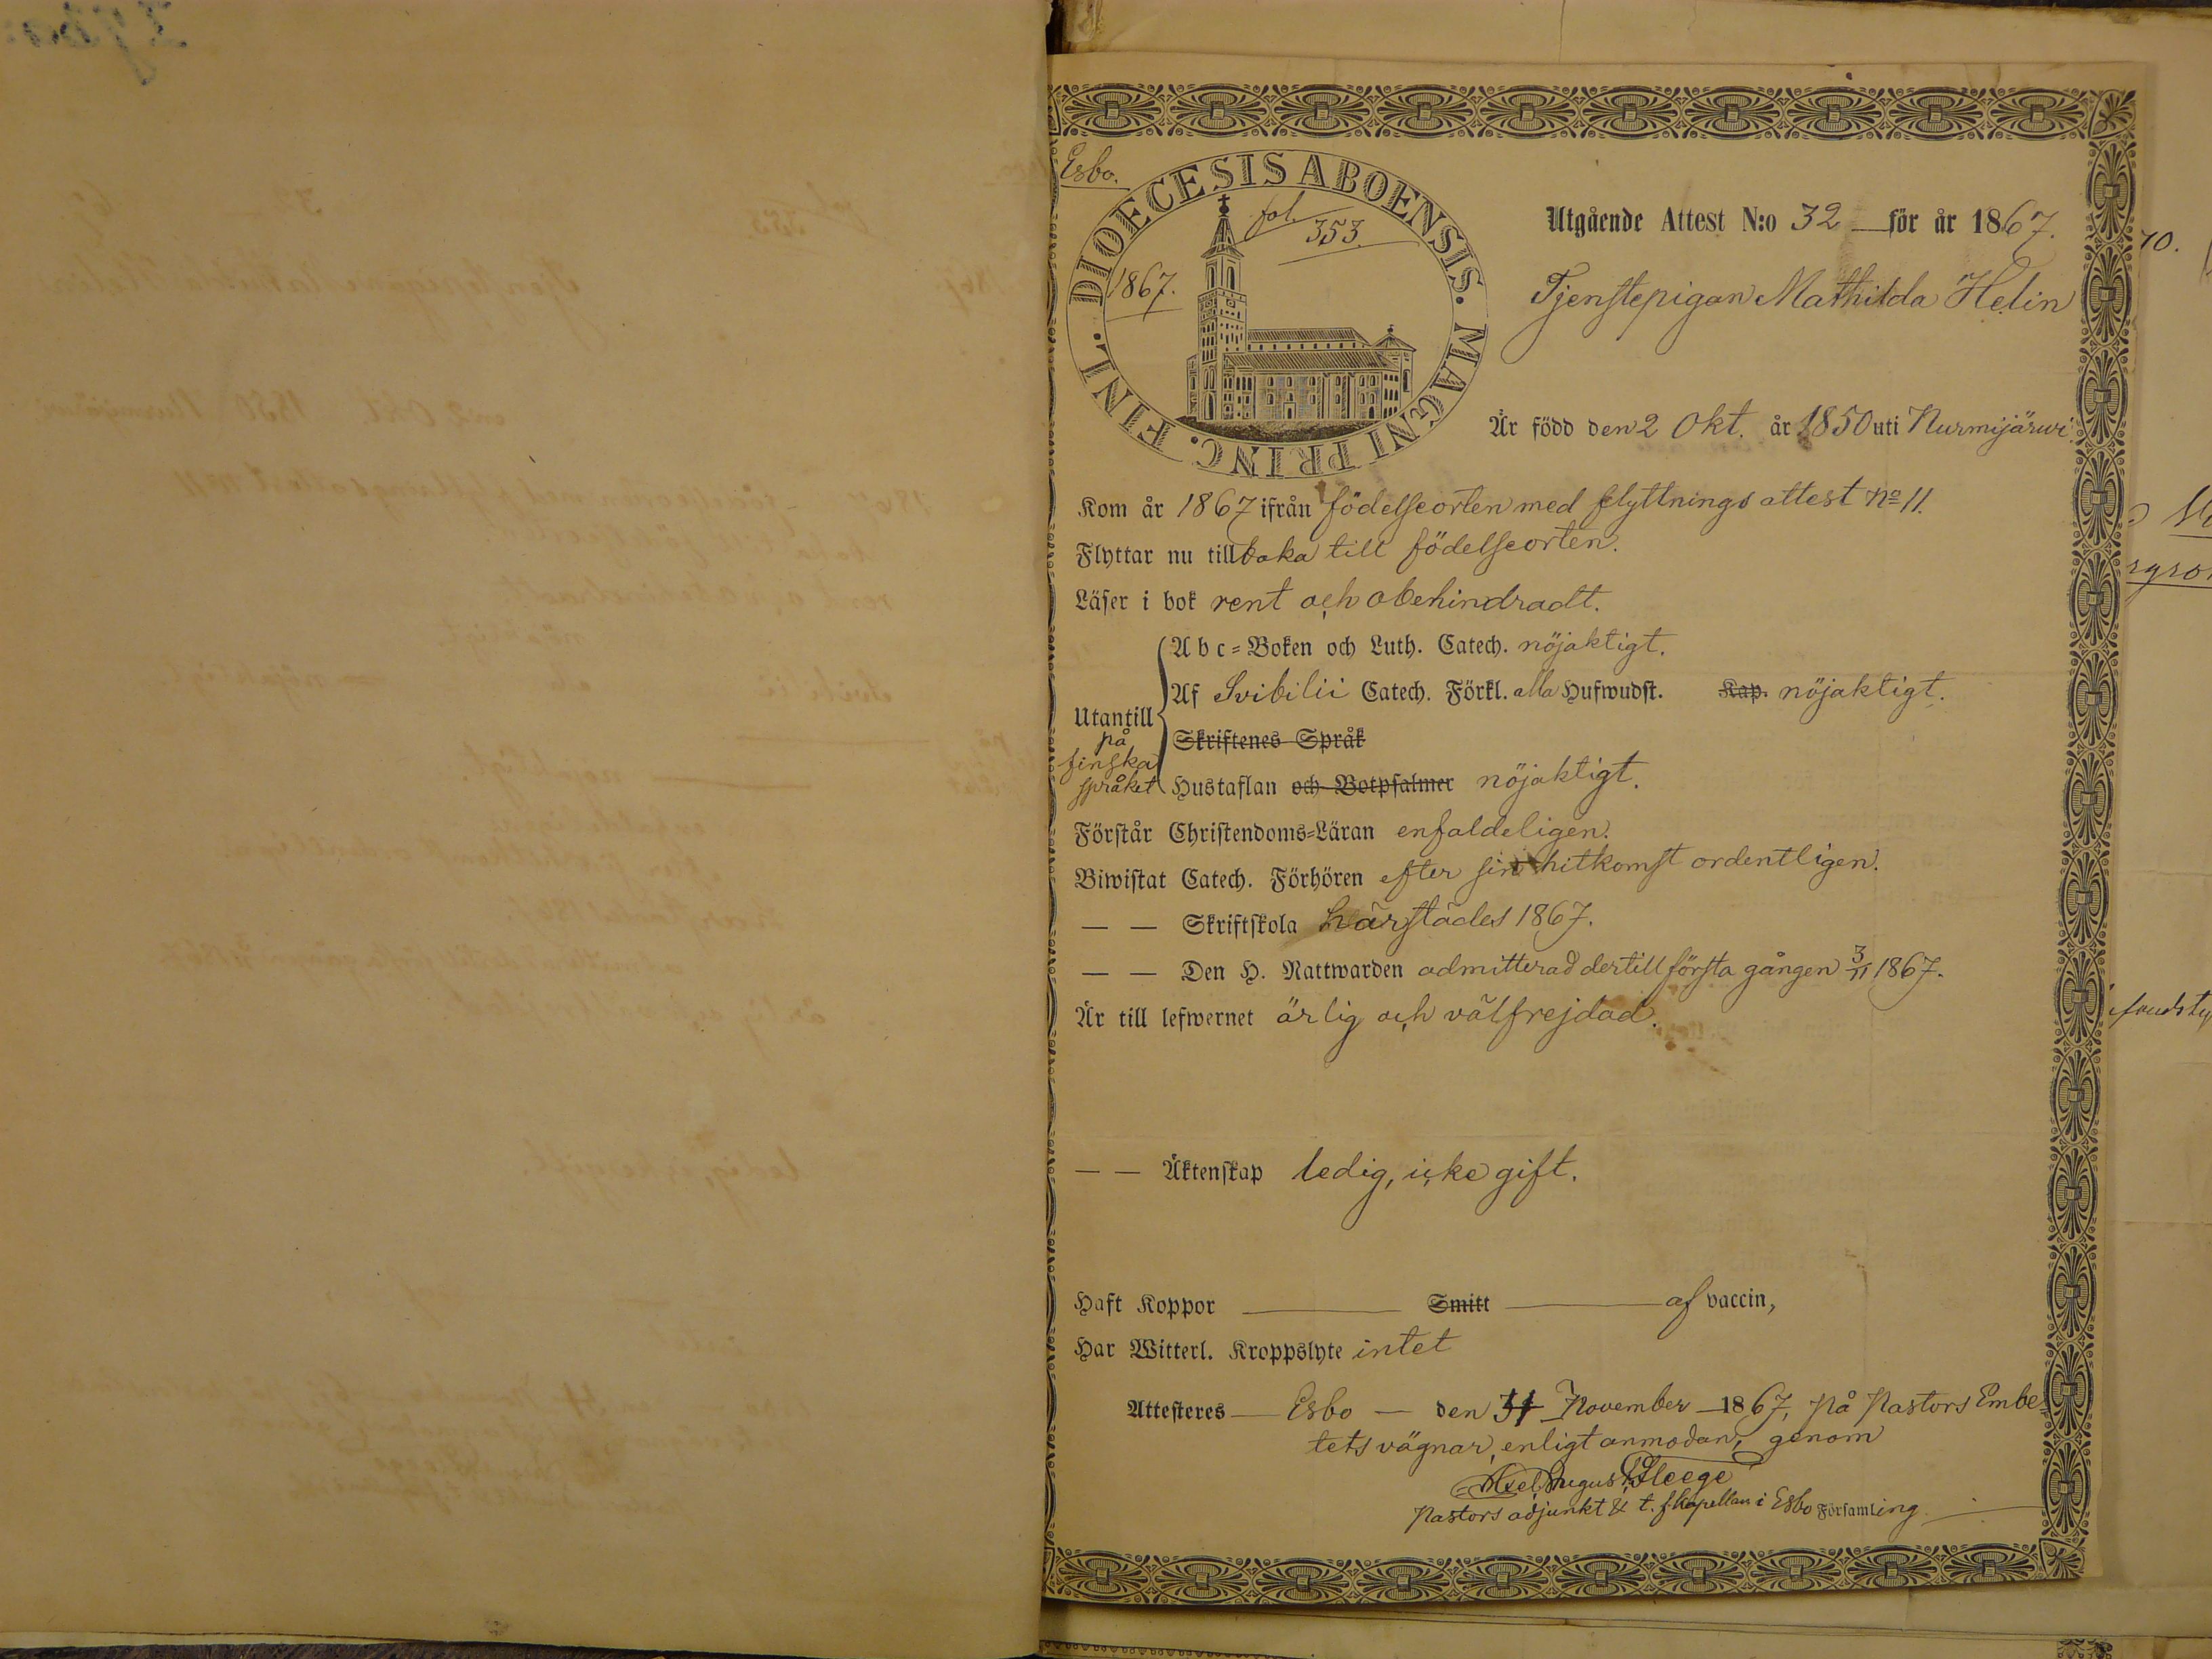 Esbo.
DIOECESIS ABOENSIS. MAGNI PRINC. FINL.
fol. 353.
1867.
Utgående Attest N:o 32 för år 1867.
Tjenstepigan Mathilda Helin
Är född den 2 Okt. år 1850 uti Nurmijärwi.
Kom år 1867 ifrån födelseorten med flyttnings attest No 11.
Flyttar nu tillbaka till födelseorten.
Läser i bok rent och obehindradt.
Utantill på finska språket
Abc=Boken och Luth. Catech. nöjaktigt.
Af Svibilii Catech. Förkl. alla Hufwudst. Kap. nöjaktigt.
Skriftenes Språk
Hustaflan och Botpsalmer nöjaktigt.
Förstår Christendoms=Läran enfaldeligen.
Biwistat Catech. Förhören efter sin hitkomst ordentligen.
— — Skriftskola härstädes 1867.
— — Den H. Nattwarden admitterad dertill första gången 3/11 1867.
Är till lefwernet ärlig och välfrejdad.
— — Äktenskap ledig, icke gift.
Haft Koppor — Smitt — af vaccin,
Har Witterl. Kroppslyte intet
Attesteres — Esbo — den November 1867, På Pastors Embe=
tets vägnar, enligt anmodan, genom
Axel August Fleege
Pastors adjunkt & t. f. kapellan i Esbo Församling.